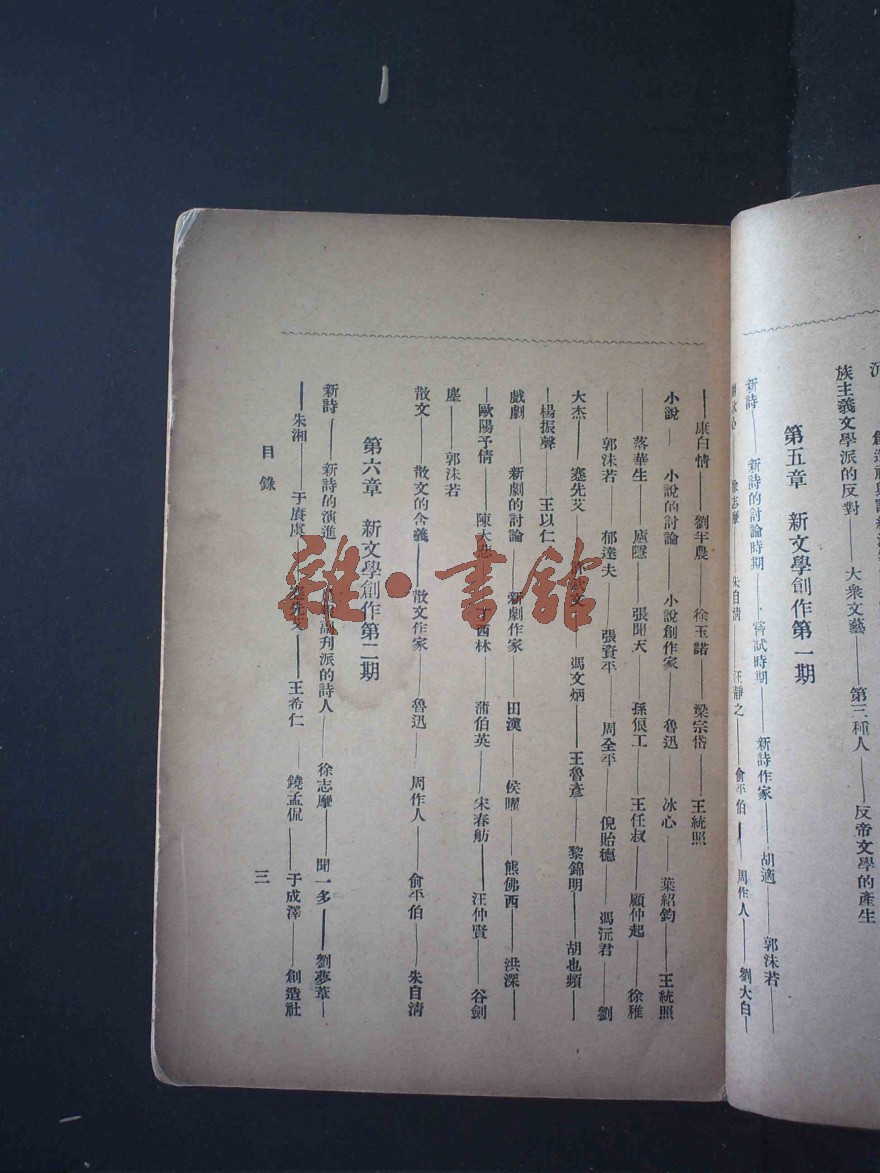 創造社
族主義文學派的反對——大衆文藝——第三種人——反帝文學的產生
第五章　新文學創作第一期
新詩——新詩的討論時期——嘗試時期——新詩作家——胡適——郭沫若
徐志摩——朱自清——汪靜之——俞平伯——周作人——劉大白——
——康白情——劉半農——徐玉諾——梁宗岱——王統照
小說——小說的討論——小說創作家——魯迅——冰心——葉紹鈞——王統照
——落華生——廬隱——張聞天——孫俍工——王任叔——顧仲起——徐雉
——郭沫若——郁達夫——張資平——周全平——倪貽德——馮沅君——劉
大杰——蹇先艾——文——馮文炳——王魯彥——黎錦明——胡也頻——
——楊振聲——王以仁
戲劇——新劇的討論——新劇作家——田漢——侯曜——熊佛西——洪深——
——歐陽予倩——陳大悲——丁西林——蒲伯英——宋春舫——汪仲賢——谷劍
塵——郭沫若
散文——散文的含義——散文作家——魯迅——周作人——俞平伯——朱自清
第六章　新文學創作第二期
新詩——新詩的演進——詩刋派的詩人——徐志摩——聞一多——劉夢葦——
——朱湘——于賡虞——蹇先艾——王希仁——饒孟侃——于成澤——創造社
目錄
三
雜·書館